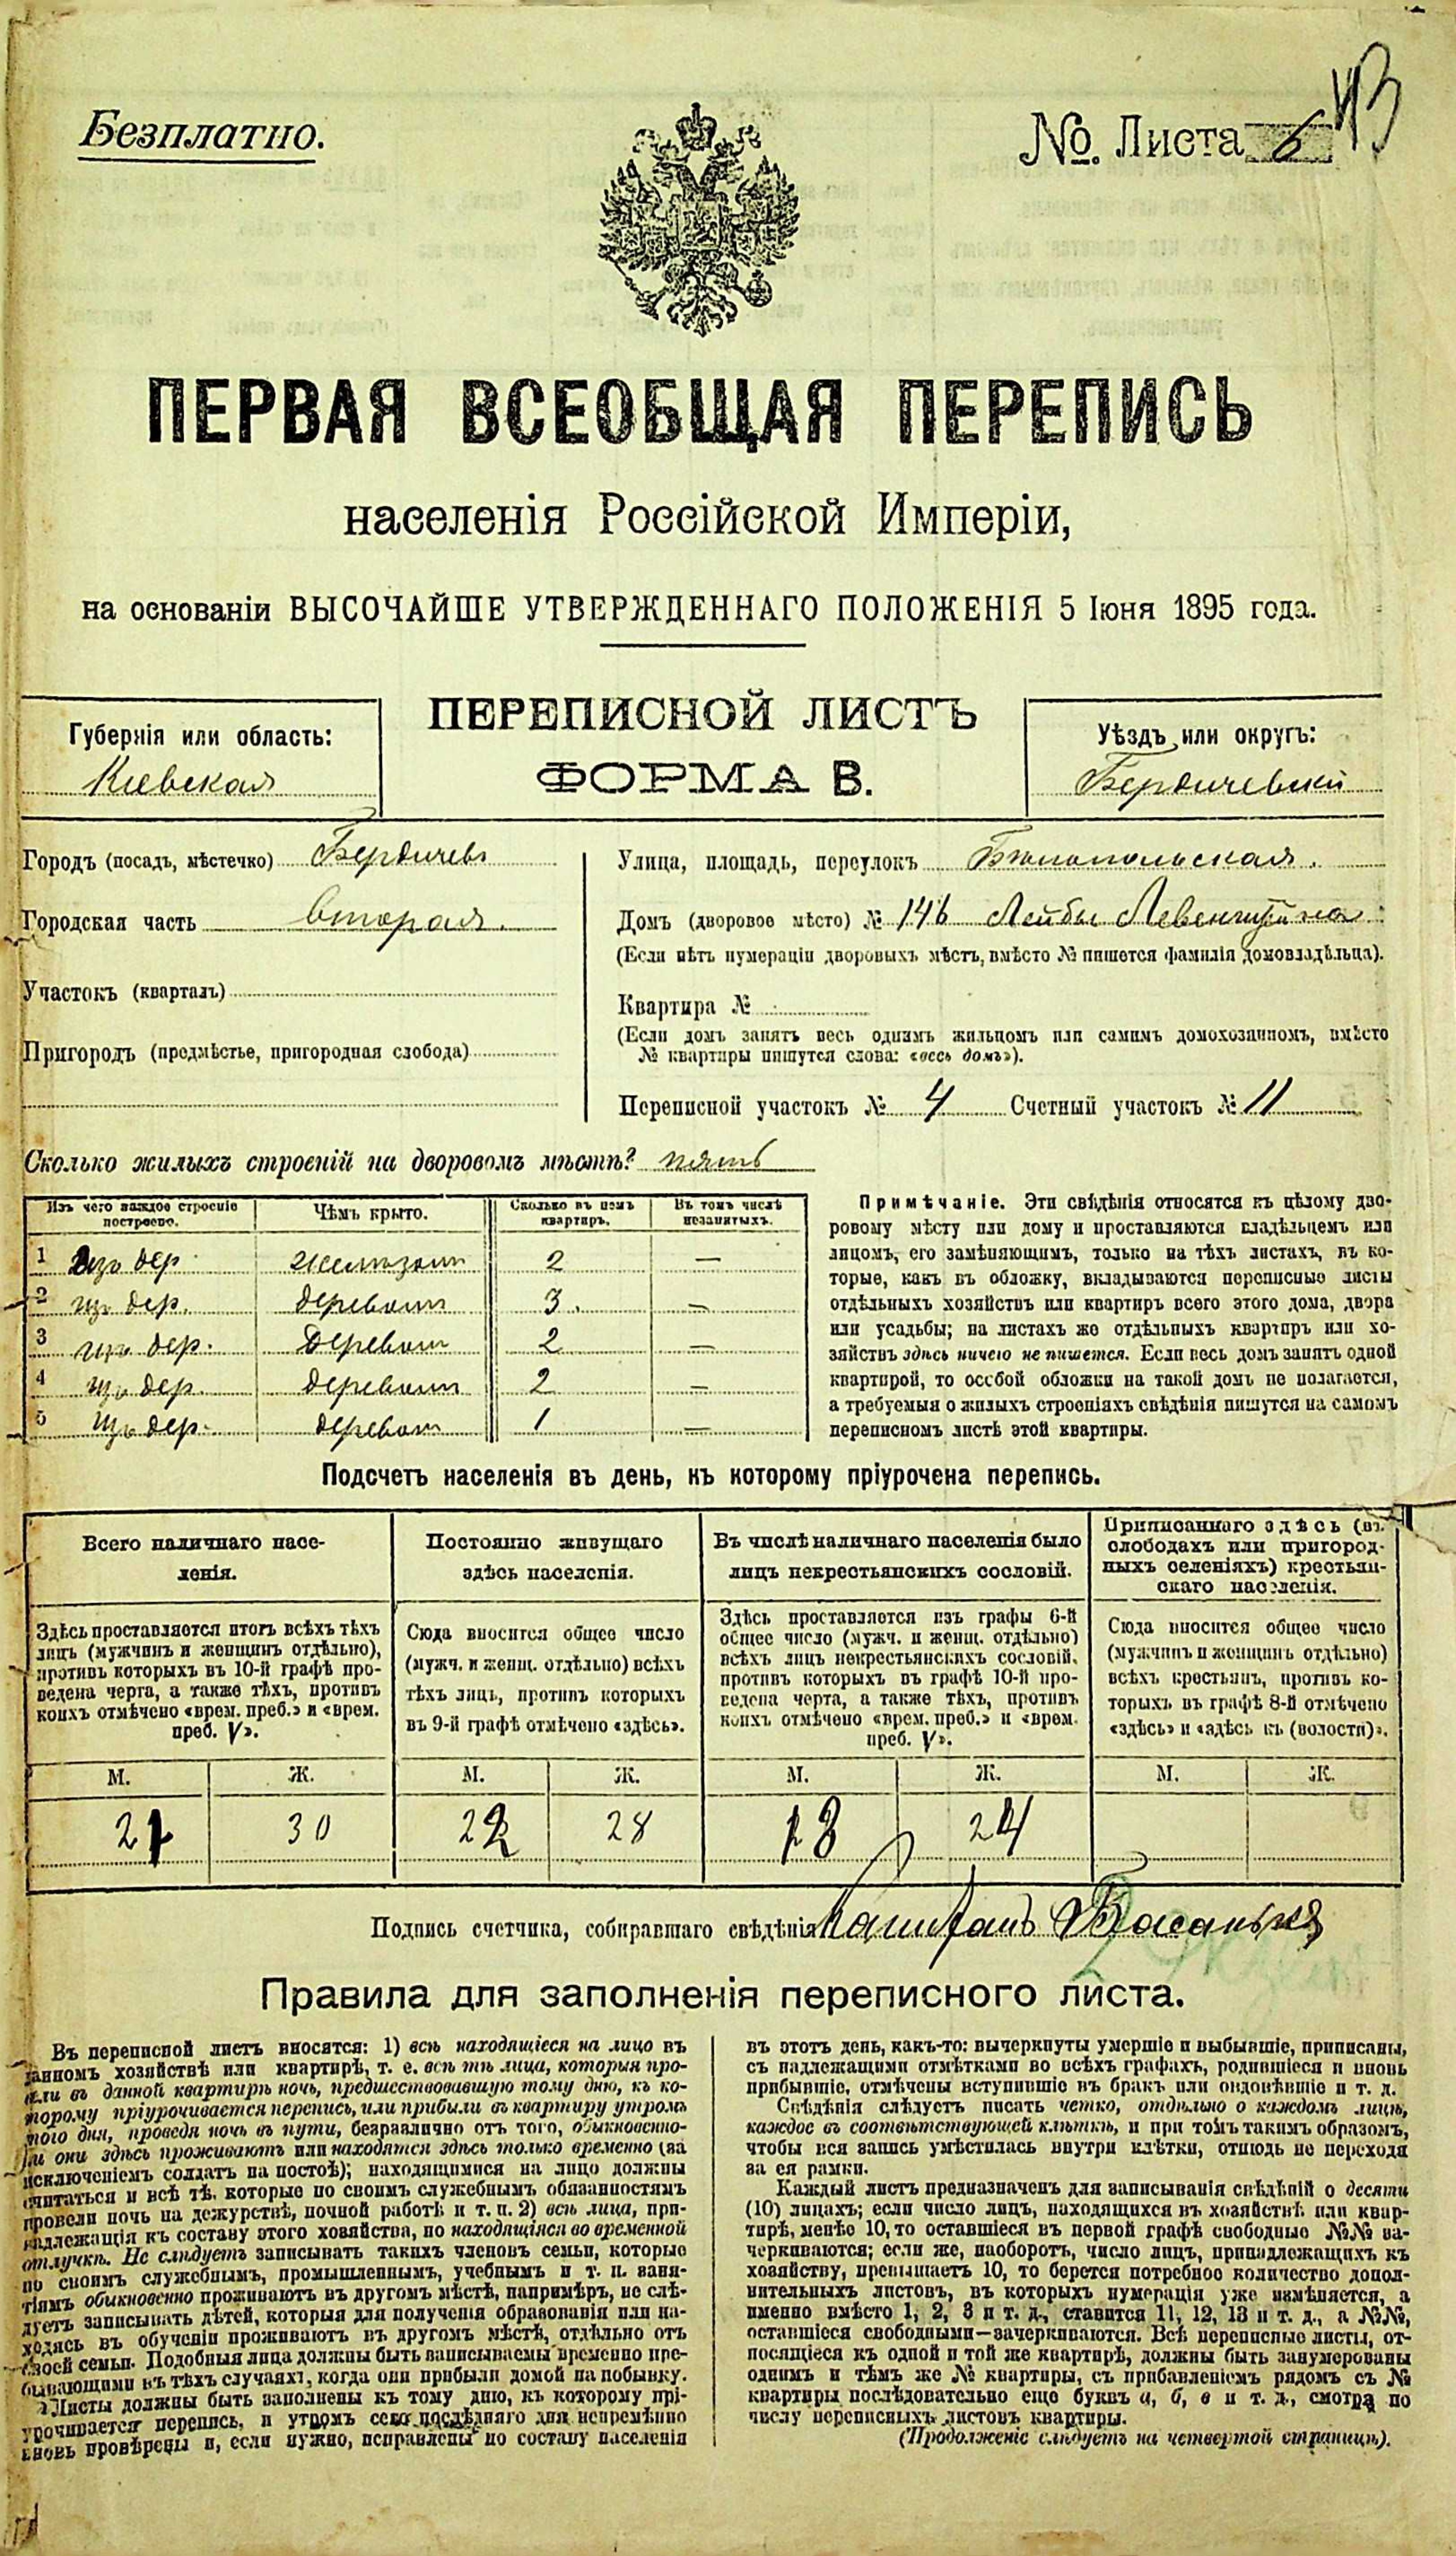 Безплатно.
№ Листа 6
43
ПЕРВАЯ ВСЕОБЩАЯ ПЕРЕПИСЬ
населенія Россійской Имперіи,
на основаніи ВЫСОЧАЙШЕ УТВЕРЖДЕННАГО ПОЛОЖЕНІЯ 5 Іюня 1895 года.
ПЕРЕПИСНОЙ ЛИСТЪ
ФОРМА В.
Губернія или область:
Кіевская
Уѣздъ или округъ:
Бердичевскій
Городъ (посадъ, мѣстечко) Бердичевъ
Городская часть вторая.
Участокъ (кварталъ)
Пригородъ (предмѣстье, пригородная слобода)
Улица, площадь, переулокъ
Домъ (дворовое мѣсто) № 146 Лейбы
(Если нѣтъ нумераціи дворовыхъ мѣстъ, вмѣсто № пишется фамилія домовладѣльца).
Квартира №
(Если домъ занятъ весь однимъ жильцомъ или самимъ домохозяиномъ, вмѣсто
№ квартиры пишутся слова: «весь домъ»).
Переписной участокъ № 4 Счетный участокъ № 11
Сколько жилыхъ строеній на дворовомъ мѣстѣ? пять
Изъ чего каждое строеніе
построено.
Чѣмъ крыто.
Сколько въ немъ
квартиръ.
Въ томъ числѣ
незанятыхъ.
1 изъ дер. желѣзомъ 2 —
2 изъ дер. деревомъ 3. —
3 изъ дер. деревомъ 2 —
4 изъ дер. деревомъ 2 —
5 изъ дер. деревомъ 1 —
Примѣчаніе. Эти свѣдѣнія относятся къ цѣлому дво-
ровому мѣсту или дому и проставляются владѣльцемъ или
лицомъ, его замѣняющимъ, только на тѣхъ листахъ, въ ко-
торые, какъ въ обложку, вкладываются переписные листы
отдѣльныхъ хозяйствъ или квартиръ всего этого дома, двора
или усадьбы; на листахъ же отдѣльныхъ квартиръ или хо-
зяйствъ здѣсь ничего не пишется. Если весь домъ занятъ одной
квартирой, то особой обложки на такой домъ не полагается,
а требуемыя о жилыхъ строеніяхъ свѣдѣнія пишутся на самомъ
переписномъ листѣ этой квартиры.
Подсчетъ населенія въ день, къ которому пріурочена перепись.
Всего наличнаго насе-
ленія.
Здѣсь проставляется итогъ всѣхъ тѣхъ
лицъ (мужчинъ и женщинъ отдѣльно),
противъ которыхъ въ 10-й графѣ про-
ведена черта, а также тѣхъ, противъ
коихъ отмѣчено «врем. преб.» и «врем.
преб. V».
Постоянно живущаго
здѣсь населенія.
Сюда вносится общее число
(мужч. и женщ. отдѣльно) всѣхъ
тѣхъ лицъ, противъ которыхъ
въ 9-й графѣ отмѣчено «здѣсь».
Въ числѣ наличнаго населенія было
лицъ некрестьянскихъ сословій.
Здѣсь проставляется изъ графы 6-й
общее число (мужч. и женщ. отдѣльно)
всѣхъ лицъ некрестьянскихъ сословій,
противъ которыхъ въ графѣ 10-й про-
ведена черта, а также тѣхъ, противъ
коихъ отмѣчено «врем. преб.» и «врем.
преб. V».
Приписаннаго здѣсь (въ
слободахъ или пригород-
ныхъ селеніяхъ) крестьян-
скаго населенія.
Сюда вносится общее число
(мужчинъ и женщинъ отдѣльно)
всѣхъ крестьянъ, противъ ко-
торыхъ въ графѣ 8-й отмѣчено
«здѣсь» и «здѣсь къ (волости)».
М. Ж. М. Ж. М. Ж. М. Ж.
21 30 22 28 18 24
Подпись счетчика, собиравшаго свѣдѣнія
Правила для заполненія переписного листа.
Въ переписной листъ вносятся: 1) всѣ находящіеся на лицо въ
данномъ хозяйствѣ или квартирѣ, т. е. всѣ тѣ лица, которыя про-
вели въ данной квартирѣ ночь, предшествовавшую тому дню, къ ко-
торому пріурочивается перепись, или прибыли въ квартиру утромъ
того дня, проведя ночь въ пути, безразлично отъ того, обыкновенно-
ли они здѣсь проживаютъ или находятся здѣсь только временно (за
исключеніемъ солдатъ на постоѣ); находящимися на лицо должны
считаться и всѣ тѣ, которые по своимъ служебнымъ обязанностямъ
провели ночь на дежурствѣ, ночной работѣ и т. п. 2) всѣ лица, при-
надлежащія къ составу этого хозяйства, но находящіяся во временной
отлучкѣ. Не слѣдуетъ записывать такихъ членовъ семьи, которые
по своимъ служебнымъ, промышленнымъ, учебнымъ и т. п. заня-
тіямъ обыкновенно проживаютъ въ другомъ мѣстѣ, напримѣръ, не слѣ-
дуетъ записывать дѣтей, которыя для полученія образованія или на-
ходясь въ обученіи проживаютъ въ другомъ мѣстѣ, отдѣльно отъ
своей семьи. Подобныя лица должны быть записываемы временно пре-
бывающими въ тѣхъ случаяхъ, когда они прибыли домой на побывку.
Листы должны быть заполнены къ тому дню, къ которому прі-
урочивается перепись, и утромъ сего послѣдняго дня непремѣнно
вновь провѣрены и, если нужно, исправлены по составу населенія
въ этотъ день, какъ-то: вычеркнуты умершіе и выбывшіе, приписаны,
съ надлежащими отмѣтками во всѣхъ графахъ, родившіеся и вновь
прибывшіе, отмѣчены вступившіе въ бракъ или овдовѣвшіе и т. д.
Свѣдѣнія слѣдуетъ писать четко, отдѣльно о каждомъ лицѣ,
каждое въ соотвѣтствующей клѣткѣ, и при томъ такимъ образомъ,
чтобы вся запись умѣстилась внутри клѣтки, отнюдь не переходя
за ея рамки.
Каждый листъ предназначенъ для записыванія свѣдѣній о десяти
(10) лицахъ; если число лицъ, находящихся въ хозяйствѣ или квар-
тирѣ, менѣе 10, то оставшіеся въ первой графѣ свободные №№ за-
черкиваются; если же, наоборотъ, число лицъ, принадлежащихъ къ
хозяйству, превышаетъ 10, то берется потребное количество допол-
нительныхъ листовъ, въ которыхъ нумерація уже измѣняется, а
именно вмѣсто 1, 2, 3 и т. д., ставится 11, 12, 13 и т. д., а №№,
оставшіеся свободными—зачеркиваются. Всѣ переписные листы, от-
носящіеся къ одной и той же квартирѣ, должны быть занумерованы
однимъ и тѣмъ же № квартиры, съ прибавленіемъ рядомъ съ №
квартиры послѣдовательно еще буквъ а, б, в и т. д., смотря по
числу переписныхъ листовъ квартиры.
(Продолженіе слѣдуетъ на четвертой страницѣ).